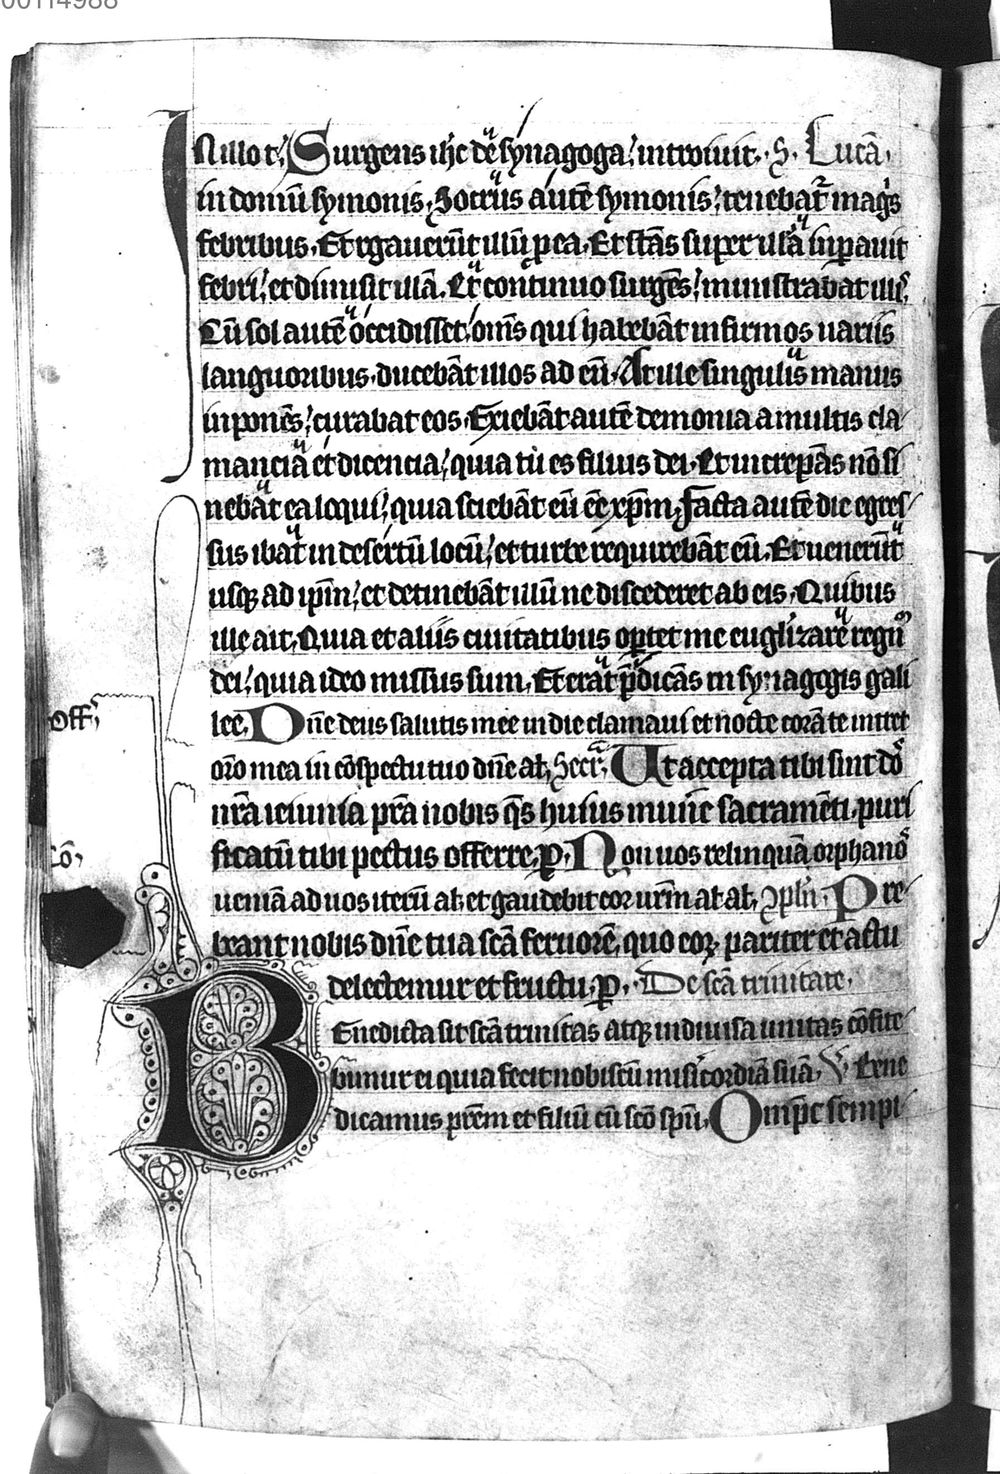 00114988
IN illo t̄. Surgens ih̄c de synagoga: introiuit. S. Lucā.
in domū symonis. Socrus autē symonis: tenebat᷑ magͥs
febribus. Et rogauerūt illū ꝑ ea. Et stās super illā inꝑauit
febri: et dimisit illā. Et continuo surgēs: ministrabat illis.
Cū sol autē occidisset: om̄s qui habebāt infirmos uariis
languoribus. ducebāt illos ad eū. At ille singulis manus
inponēs: curabat eos. Exiebāt autē demonia a multis cla
mancia et dicencia: quia tu es filius dei. Et increpās nō si
nebāt ea loqui: quia sciebāt eū ēē xp̄m. Facta autē die egres
sus ibat in desertū locū: et turbe requirebāt eū. Et uenerūt
usqꝫ ad ip̄m: et detinebāt illū ne discederet ab eis. Quibus
ille ait. Quia et aliis ciuitatibus oꝑtet me euglizare regnū
dei: quia ideo missus sum. Et erat p̄dicās in synagogis gali
lee. Dn̄e deus salutis mee in die clamaui et nocte corā te intret
Off̄
or̄o mea in cōspectu tuo dn̄e al̄. Secr̄. Ut accepta tibi sint dn̄e
nr̄a ieiunia pr̄a nobis qs̄ huius mun̄e sacramēti. puri
ficatū tibi pectus offerre. ꝑ. Non uos relinquā orphanos
Cō.
ueniā ad uos iterū al̄. et gaudebit cor ur̄m al̄ al̄. ꝯpl̄. Pre
beant nobis dn̄e tua sc̄a feruorē. quo eoꝝ pariter et actu
delectemur et fructu. ꝑ. De sc̄a trinitate.
Benedicta sit sc̄a trinitas atqꝫ indiuisa unitas cōfite
bimur ei quia fecit nobiscū misicordiā suā. V. Bene
dicamus pr̄em et filiū cū sc̄o sp̄u. Omp̄c sempi